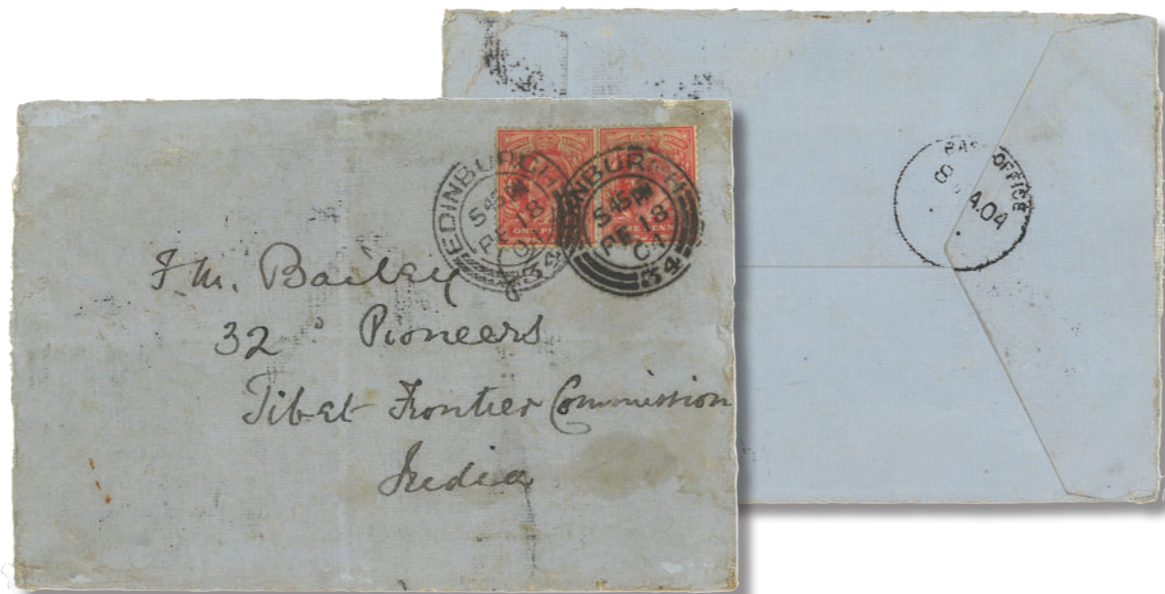 EDINBURGH
5 45 PM
FE 18
04
34
EDINBURGH
5 45 PM
FE 18
04
34
ONE PENNY
F. M. Bailey
32 Pioneers
Tibet Frontier Commission
India
OFFICE
04